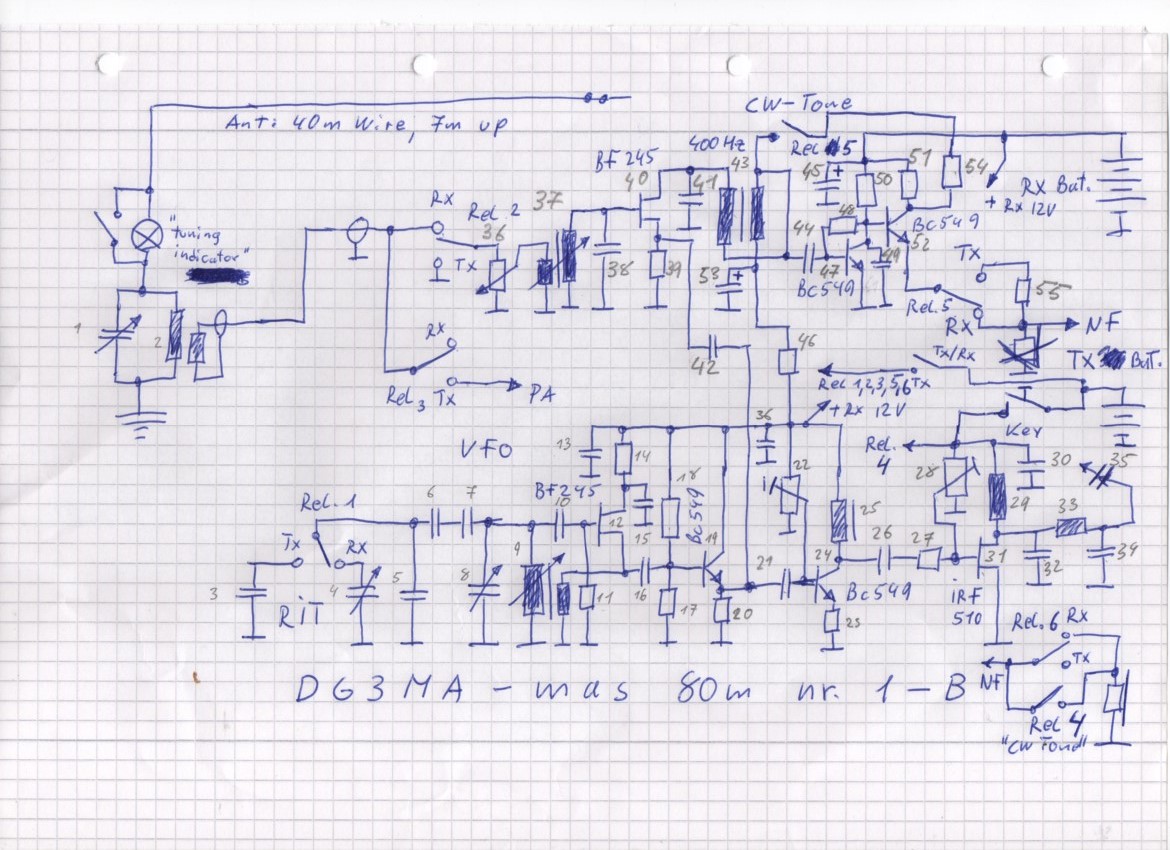 CW-Tone
Ant: 40m Wire, 7m up
400 Hz
Rel 5
BF 245
43
45
+
50
51
54
40
41
RX Bat.
+ Rx 12V
Rx
Rel. 2
37
"tuning
indicator"
36
44
48
BC 549
52
Tx
Tx
38
39
53
+
47
49
BC 549
Rel. 5
55
Rx
NF
1
2
Rx
42
46
Tx/Rx
TX Bat.
Rel 1,2,3,5,6 Tx
Rel 3
Tx
PA
+ Rx 12V
T
Key
VFO
13
14
36
Rel.
4
28
30
35
18
22
29
Rel. 1
6
7
BF 245
10
12
BC 549
25
33
Tx
Rx
9
15
19
26
27
31
3
4
5
8
11
16
17
20
21
24
BC 549
32
34
RIT
23
iRF
510
Rel. 6
Rx
Tx
DG3MA - mas 80m nr. 1-B
NF
Rel 4
"CW Tone"